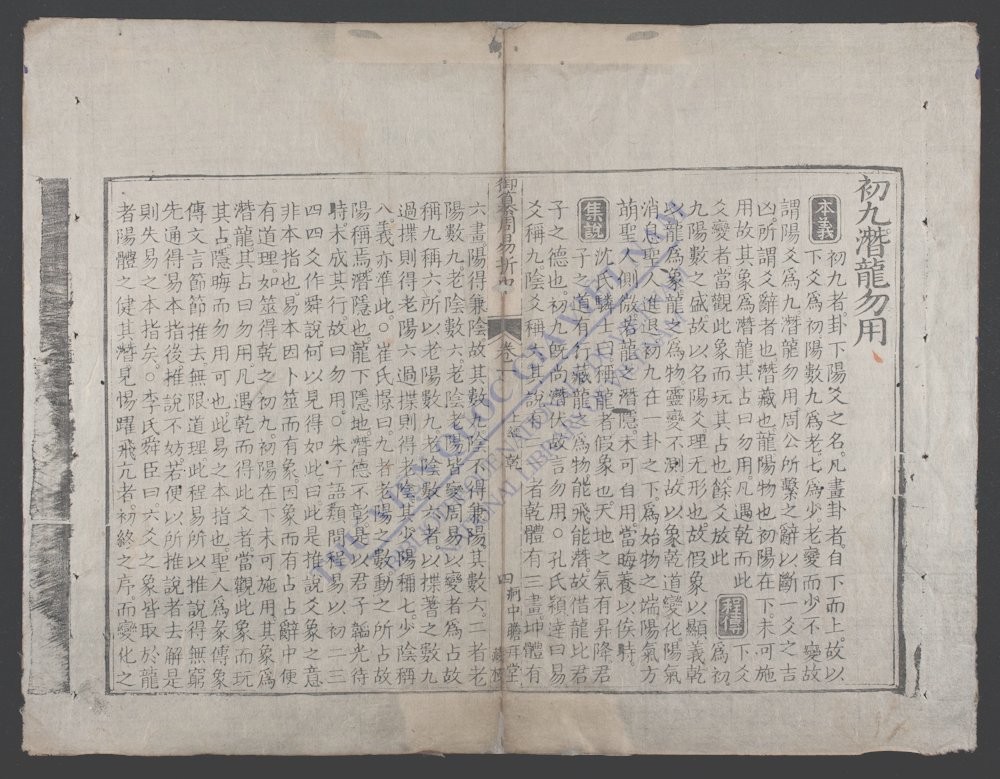 初九潛龍勿用
本義
初九者卦下陽爻之名凡畫卦者自下而上故以
下爻為初陽數九為老七為少老變而少不變故
謂陽爻為九潛龍勿用周公所繫之辭以斷一爻之吉
凶所謂爻辭者也潛藏也龍陽物也初陽在下未可施
用故其象為潛龍其占曰勿用凡遇乾而此
爻變者當觀此象而玩其占也餘爻放此
程傳
下爻
為初
九陽數之盛故以名陽爻理无形也故假象以顯義乾
以龍為象龍之為物靈變不測故以象乾道變化陽氣
消息聖人進退初九在一卦之下為始物之端陽氣方
萌聖人側微若龍之潛隱未可自用當晦養以俟時
集說
沈氏驎士曰稱龍者假象也天地之氣有昇降君
子之道有行藏龍之為物能飛能潛故借龍比君
子之德也初九既尚潛伏故言勿用○孔氏穎達曰易
爻稱九陰爻稱六其說有二一者乾體有三畫坤體有
御纂周易折中
卷一
乾
六畫陽得兼陰故其數九陰不得兼陽其數六二者老
陽數九老陰數六老陰老陽皆變周易以變者為占故
稱九稱六所以老陽數九老陰數六者以揲蓍之數九
過揲則得老陽六過揲則得老陰其少陽稱七少陰稱
八義亦準此○崔氏憬曰九者老陽之數動之所占故
陽稱焉潛隱也龍下隱地潛德不彰是以君子韜光待
時未成其行故曰勿用○朱子語類問程易以初二三
四四爻作舜說何以見得如此曰此是推說爻象之意
非本指也易本因卜筮而有象因象而有占占辭中便
有道理如筮得乾之初九初陽在下未可施用其象為
潛龍其占曰勿用凡遇乾而得此爻者當觀此象而玩
其占隱晦而勿用可也此易之本指也聖人為彖傳象
傳文言節節推去無限道理此程易所以推說得無窮
先通得易本指後推說不妨若便以所推說者去解是
則失易之本指矣○李氏舜臣曰六爻之象皆取於龍
者陽體之健其潛見惕躍飛亢者初終之序而變化之